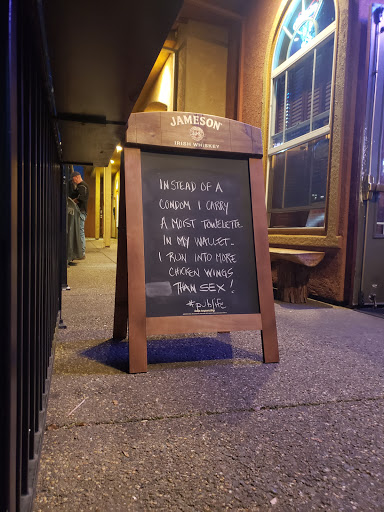 JAMESON
IRISH WHISKEY
INSTEAD OF A
CONDOM I CARRY
A MOIST TOWELETTE
IN MY WALLET-
I RUN INTO MORE
CHICKEN WINGS
THAN SEX!
#publife